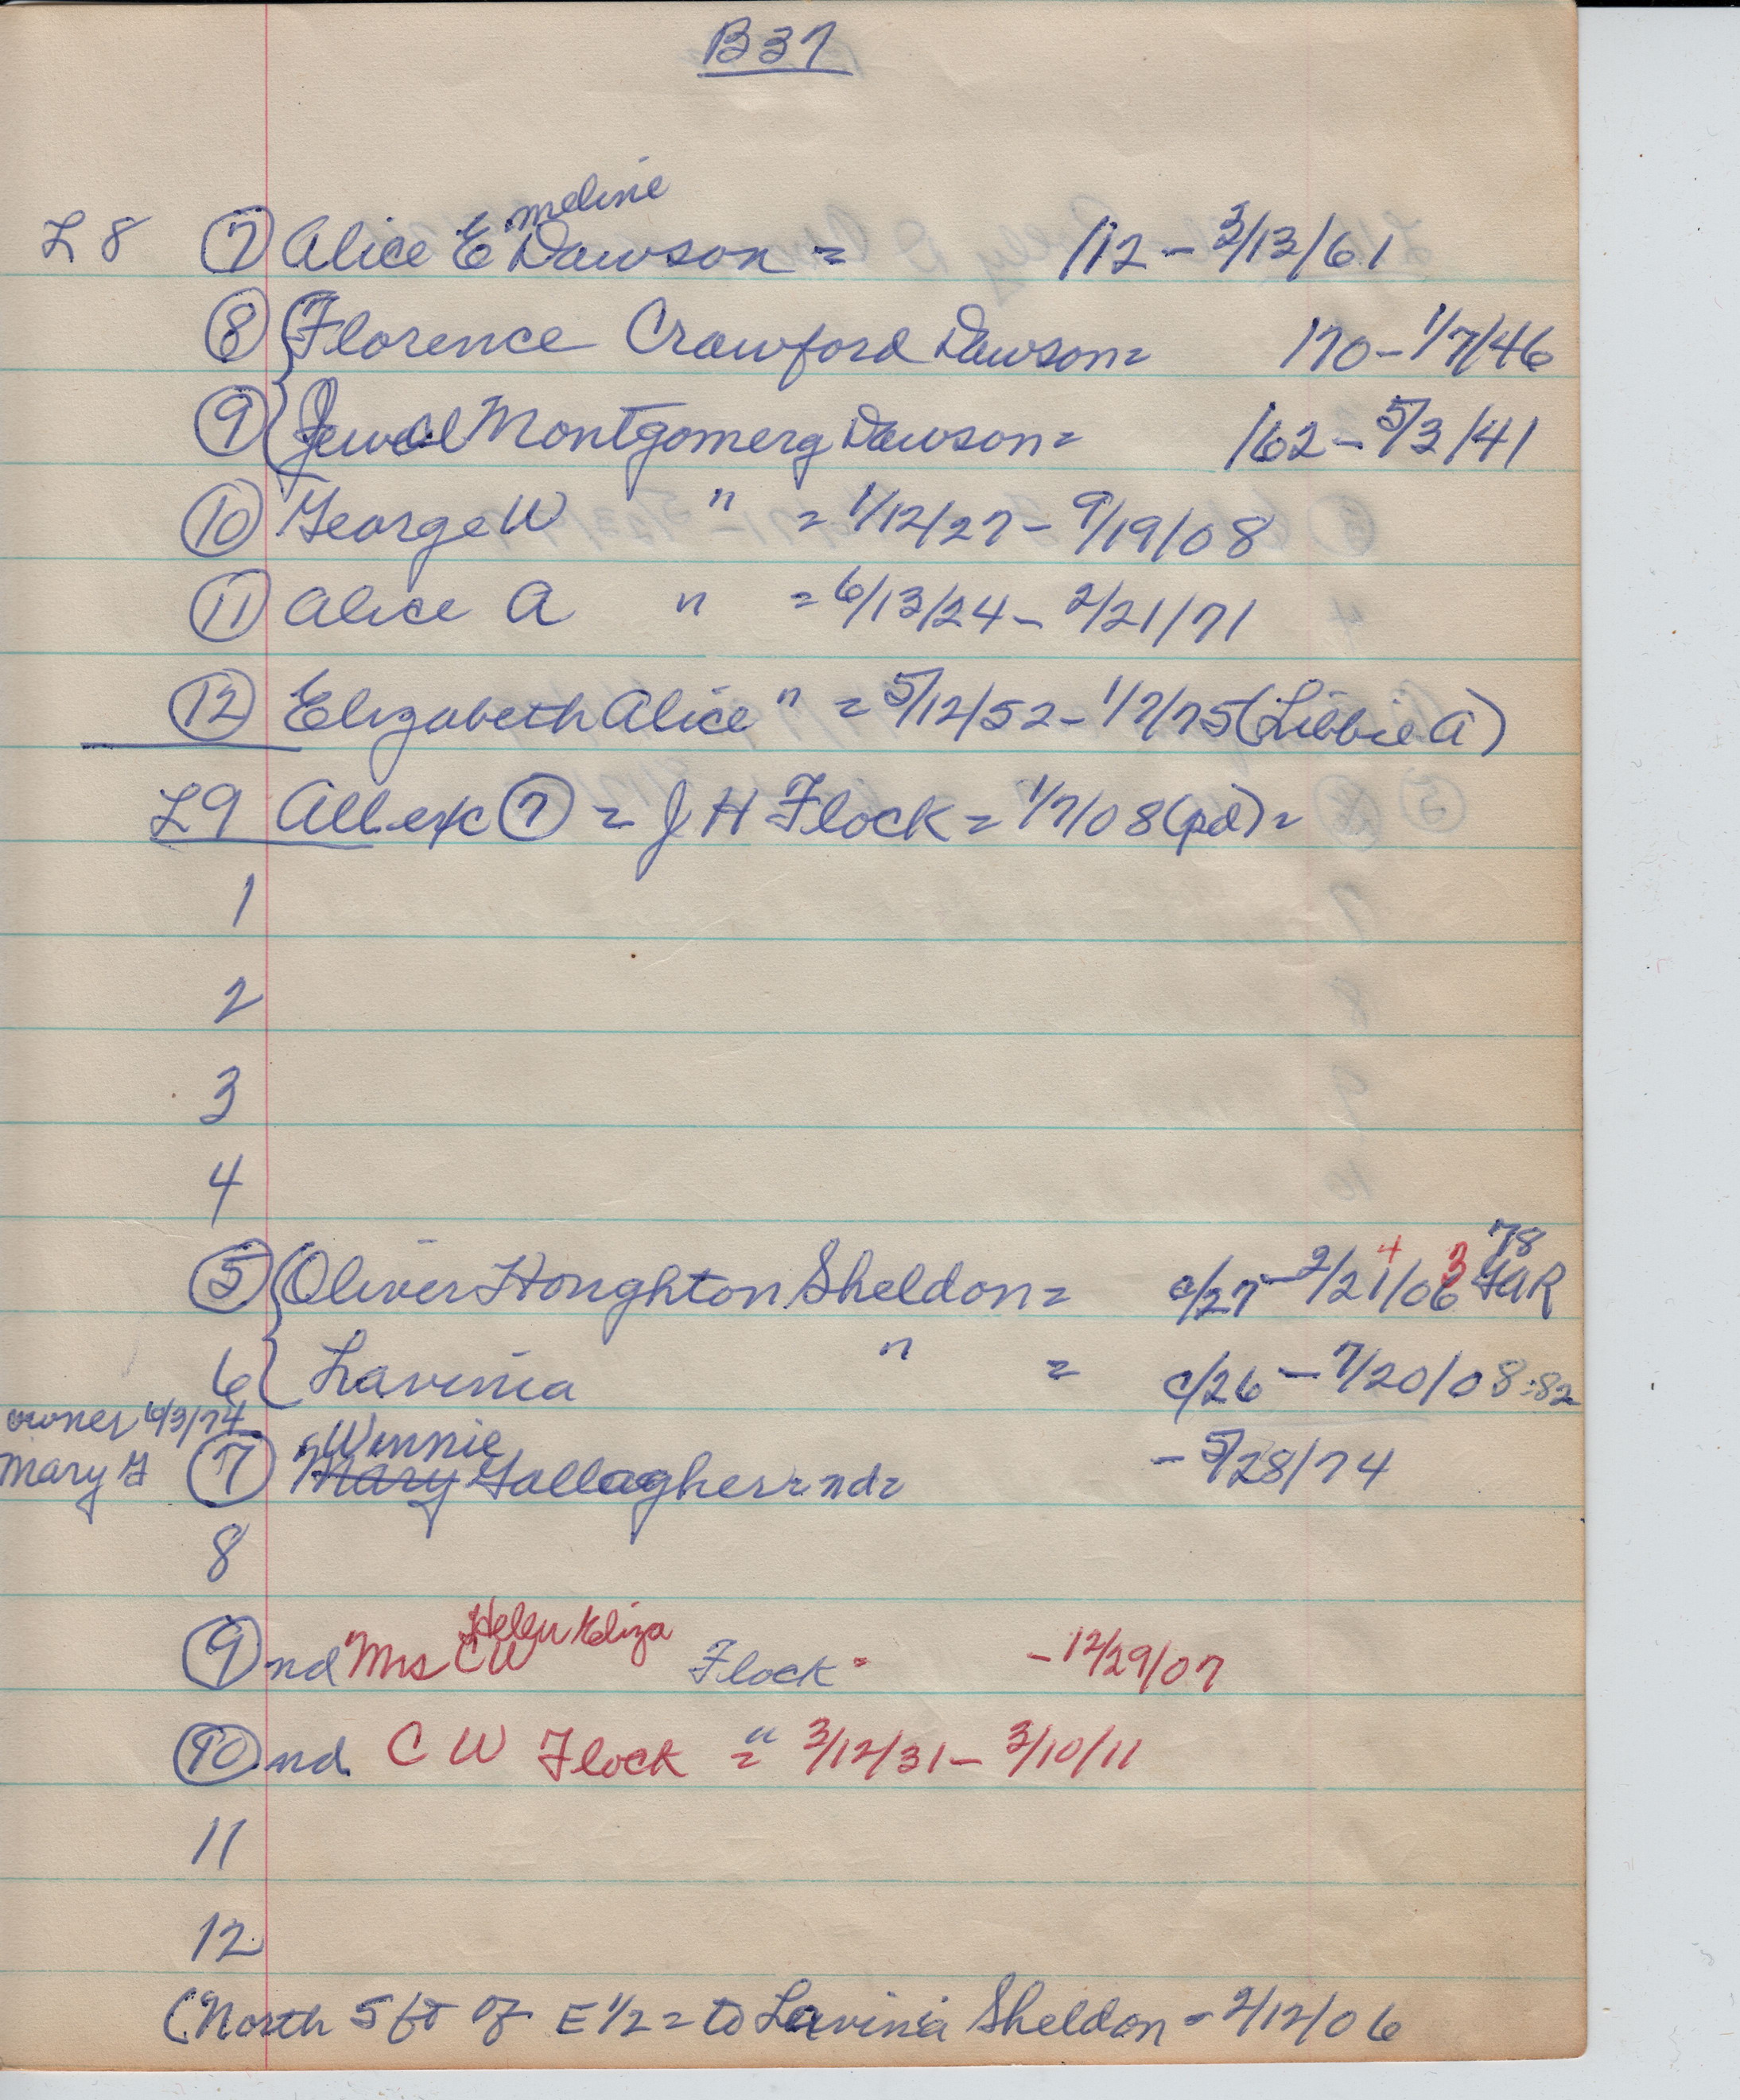 B37
meline
L 8 (7) Alice E Dawson = /12 - 3/13/61
(8) { Florence Crawford Dawson = /70 - 1/7/46
(9) { Jewel Montgomery Dawson = /62 - 5/3/41
(10) George W " = 1/12/27 - 9/19/08
(11) Alice A " = 6/13/24 - 2/21/71
(12) Elizabeth Alice " = 5/12/52 - 1/7/75 (Libbie A)
L9 All exc (7) = J H Flock = 1/7/08 (pd) =
1
2
3
4
4 3 78
(5) { Oliver Houghton Sheldon = c/27 - 2/21/06 GAR
6 { Lavinia " = c/26 - 7/20/08 = 82
owner 6/3/74 Winnie
Mary G (7) Mary Gallagher = nd = - 5/28/74
8
Helen Eliza
(9) nd Mrs CW Flock = - 12/29/07
(10) nd C W Flock " = 3/12/31 - 3/10/11
11
12
(North 5 ft of E 1/2 = to Lavinia Sheldon = 2/12/06